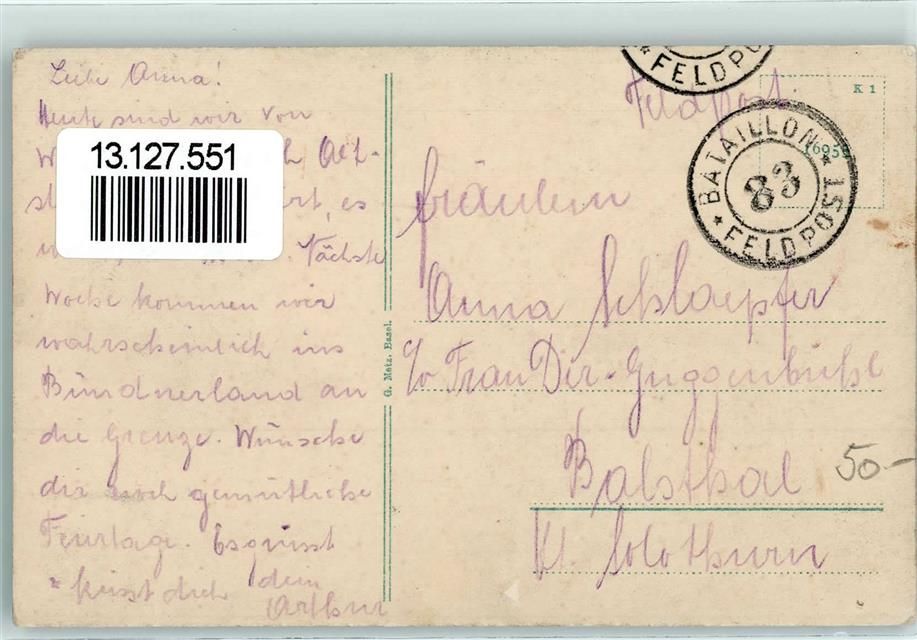 Liebe Anna!
Heute sind wir von
13.127.551
Alt-
es
Nächste
Woche kommen wir
wahrscheinlich ins
Bündnerland an
die Grenze. Wünsche
dir noch gemütliche
Feiertage. Es grüsst
+ küsst dich dein
Arthur
G. Metz, Basel.
FELDPOST
Feldpost
K 1
1695
BATAILLON 83
FELDPOST
Fräulein
Anna Schlaepfer
c/o Frau Dir. Guggenbühl
Balsthal
Kt. Solothurn
50-